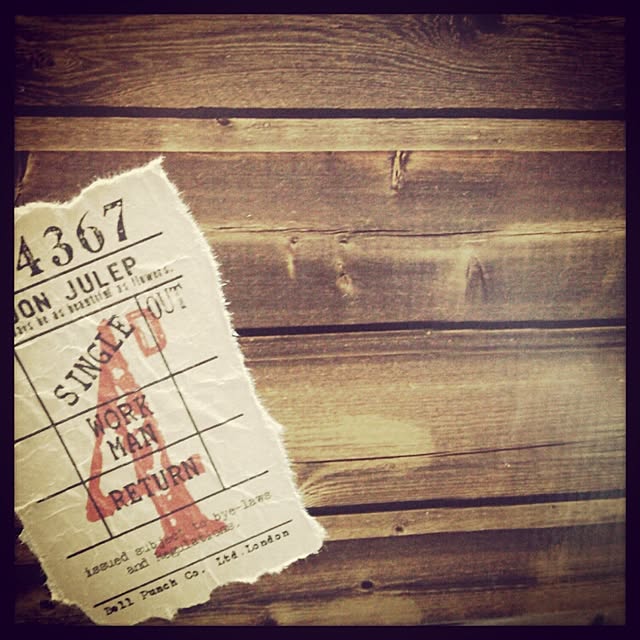 4367
ON JULEP
be as beautiful as flowers.
SINGLE OUT
4D
WORK
MAN
RETURN
issued subject to bye-laws
and regulations.
Bell Punch Co. Ltd. London